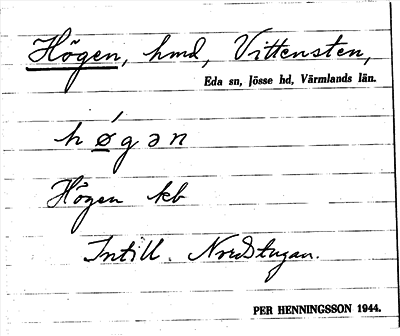 Högen, hmd, Vittensten,
Eda sn, Jösse hd, Värmlands län.
hǿgən
Högen kb
Intill. Nordstugan.
PER HENNINGSSON 1944.